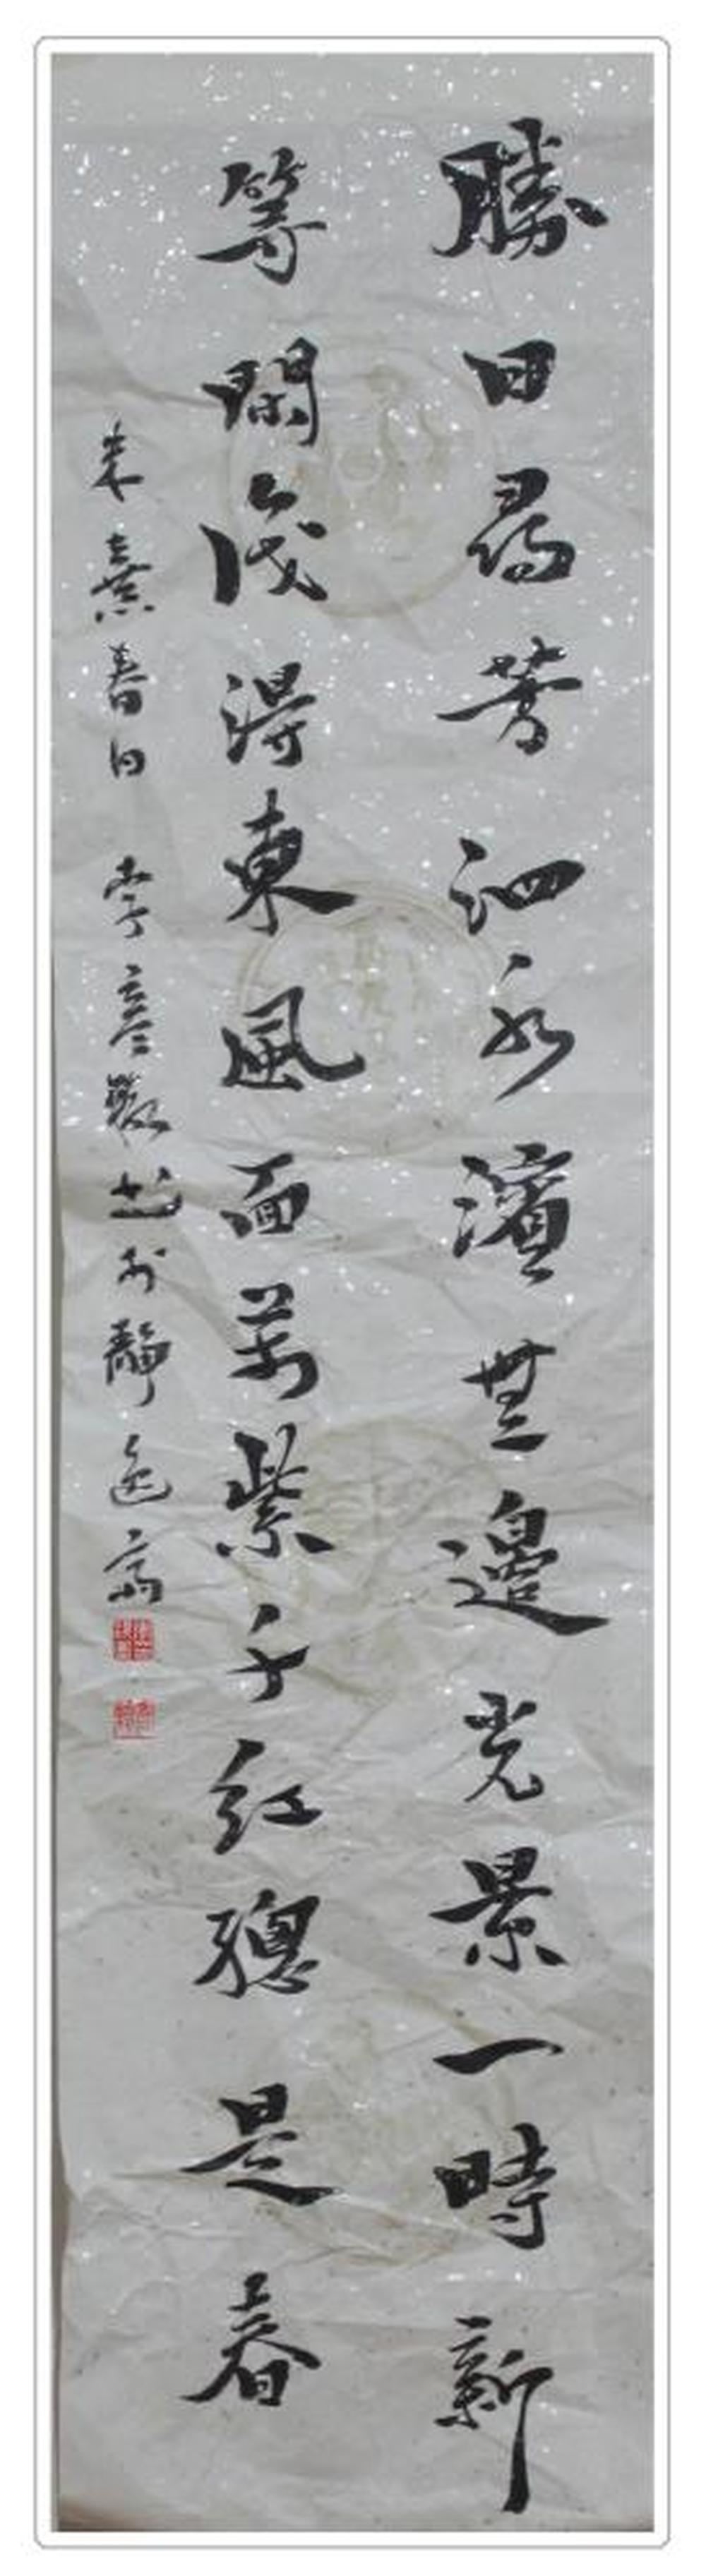 勝日尋芳泗水濱無邊光景一時新
等閑識得東風面萬紫千紅總是春
朱熹春日 李彦 书於靜逸齋